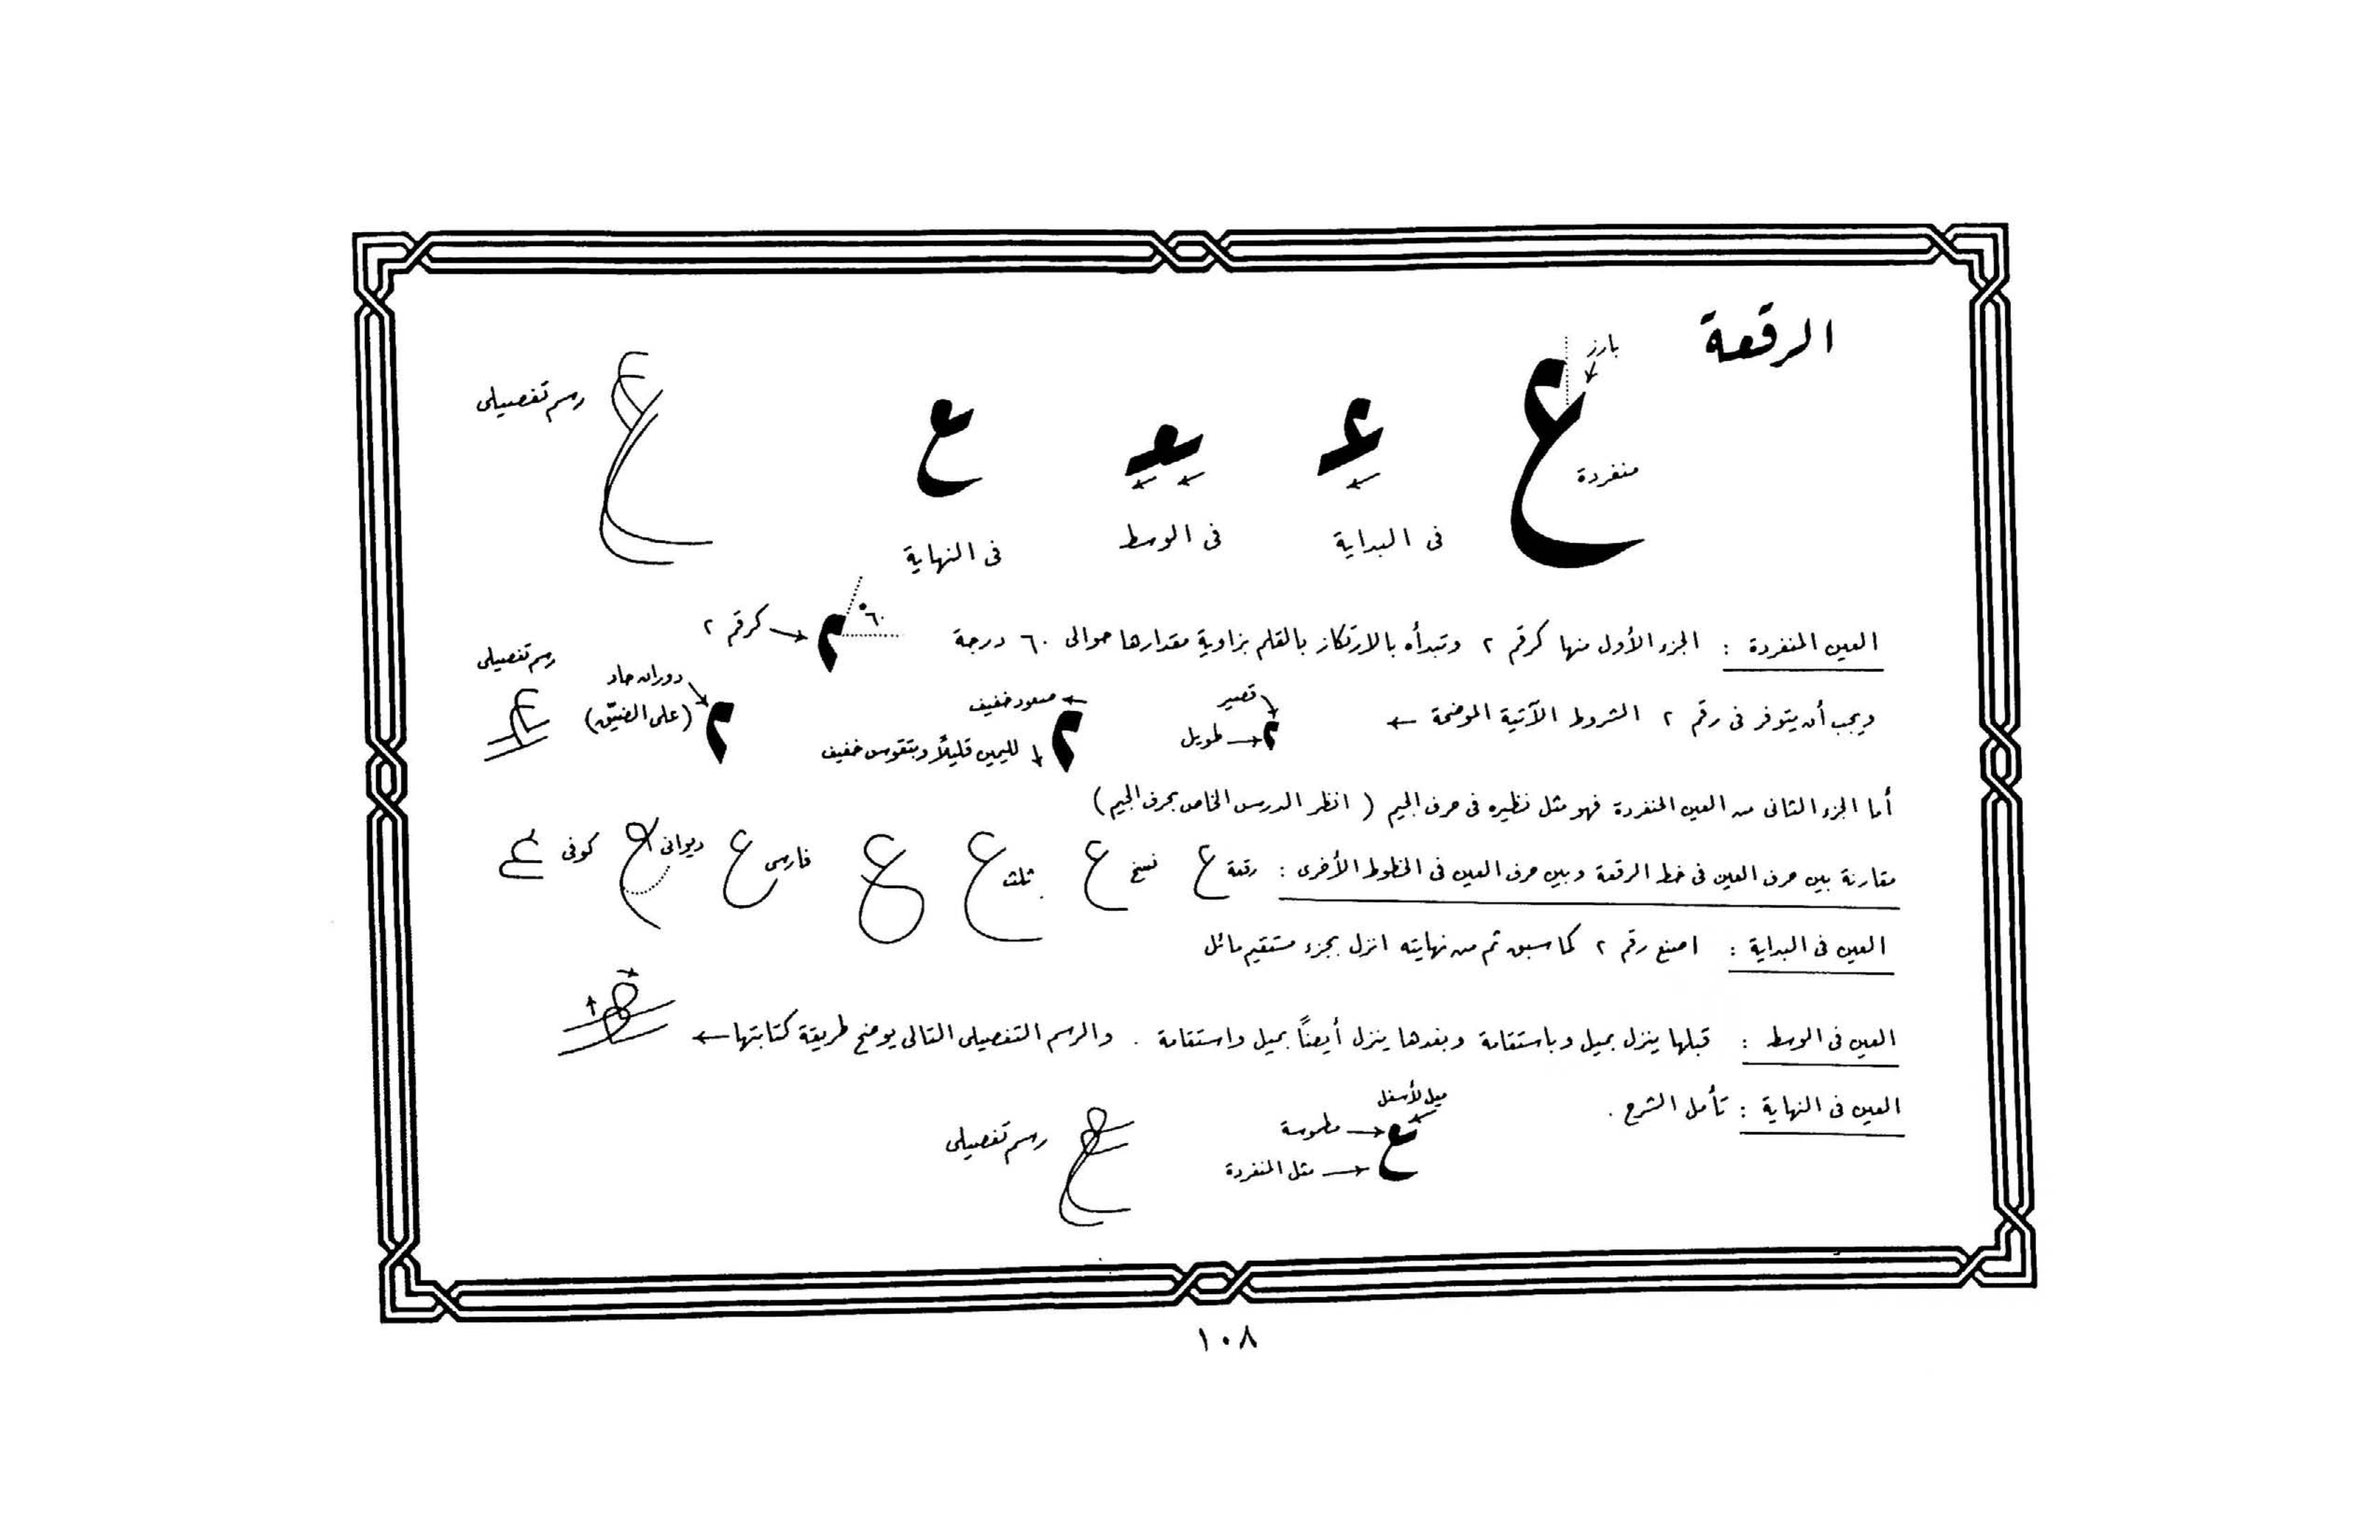 الرقعة
بارز
منفردة
رسم تفصيلى
فى البداية
فى الوسط
فى النهاية
العين المنفردة : الجزء الأول منها كرقم ٢ وتبدأه بالارتكاز بالقلم بزاوية مقدارها حوالى ٦٠ درجة
٦٠°
كرقم ٢
ويجب أن يتوفر فى رقم ٢ الشروط الآتية الموضحة
قصير
طويل
صعود خفيف
لليمين قليلاً وبتقوس خفيف
دوران حاد
(على الضيّق)
رسم تفصيلى
أما الجزء الثانى من العين المنفردة فهو مثل نظيره فى حرف الجيم ( انظر الدرس الخاص بحرف الجيم )
مقارنة بين حرف العين فى خط الرقعة وبين حرف العين فى الخطوط الأخرى : رقعة ع نسخ ع ثلث ع ع فارسى ع ديوانى ع كوفى ع
العين فى البداية : اصنع رقم ٢ كما سبق ثم من نهايته انزل بجزء مستقيم مائل
العين فى الوسط : قبلها ينزل بميل وباستقامة وبعدها ينزل أيضاً بميل واستقامة . والرسم التفصيلى التالى يوضح طريقة كتابتها
العين فى النهاية : تأمل الشرح .
ميل لأسفل
مطموسة
مثل المنفردة
رسم تفصيلى
١٠٨